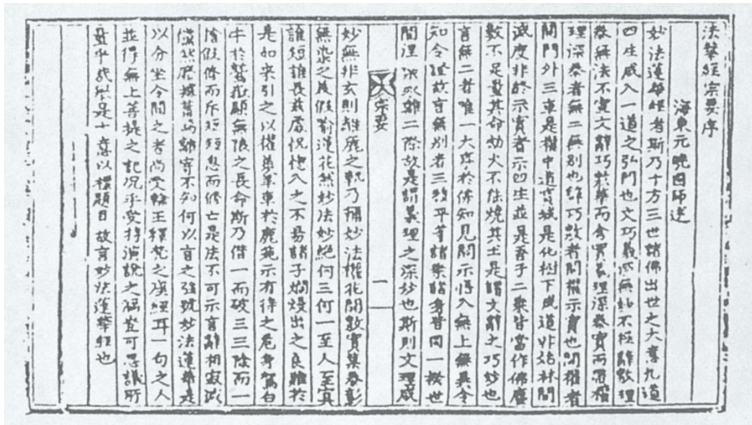 法華經宗要序
海東元曉國師述
妙法蓮華經者斯乃十方三世諸佛出世之大意九道
四生咸入一道之弘門也文巧義深無妙不極辭敷理
泰無法不宣文辭巧敷華而含實義理深泰實而帶權
理深泰者無二無別也辭巧敷者開權示實也開權者
開門外三車是權中途寶城是化樹下成道非始林間
滅度非終示實者示四生並是吾子二乘皆當作佛塵
數不足量其命劫火不能燒其土是謂文辭之巧妙也
言無二者唯一大事於佛知見開示悟入無上無異令
知令證故言無別者三種平等諸乘諸身皆同一揆世
間涅槃永離二際故是謂義理之深妙也斯則文理咸
宗要 一
妙無非玄則離麁之軌乃稱妙法權花開敷實菓泰彰
無染之美假喻蓮花然妙法妙絕何三何一至人至冥
誰短誰長茲處恍惚入之不易諸子爛熳出之良難於
是如來引之以權羨羊車於鹿苑示有待之麁身駕白
牛於鷲岳顯無限之長命斯乃借一而破三三除而一
捨假修而斥短短息而修亡是法不可示言辭相寂滅
蕩然靡據蕭焉離寄不知何以言之強號妙法蓮華是
以分坐令聞之者尚受輪王釋梵之座經耳一句之人
並得無上菩提之記況乎受持演說之福豈可思議所
量乎哉舉是大意以標題目故言妙法蓮華經也